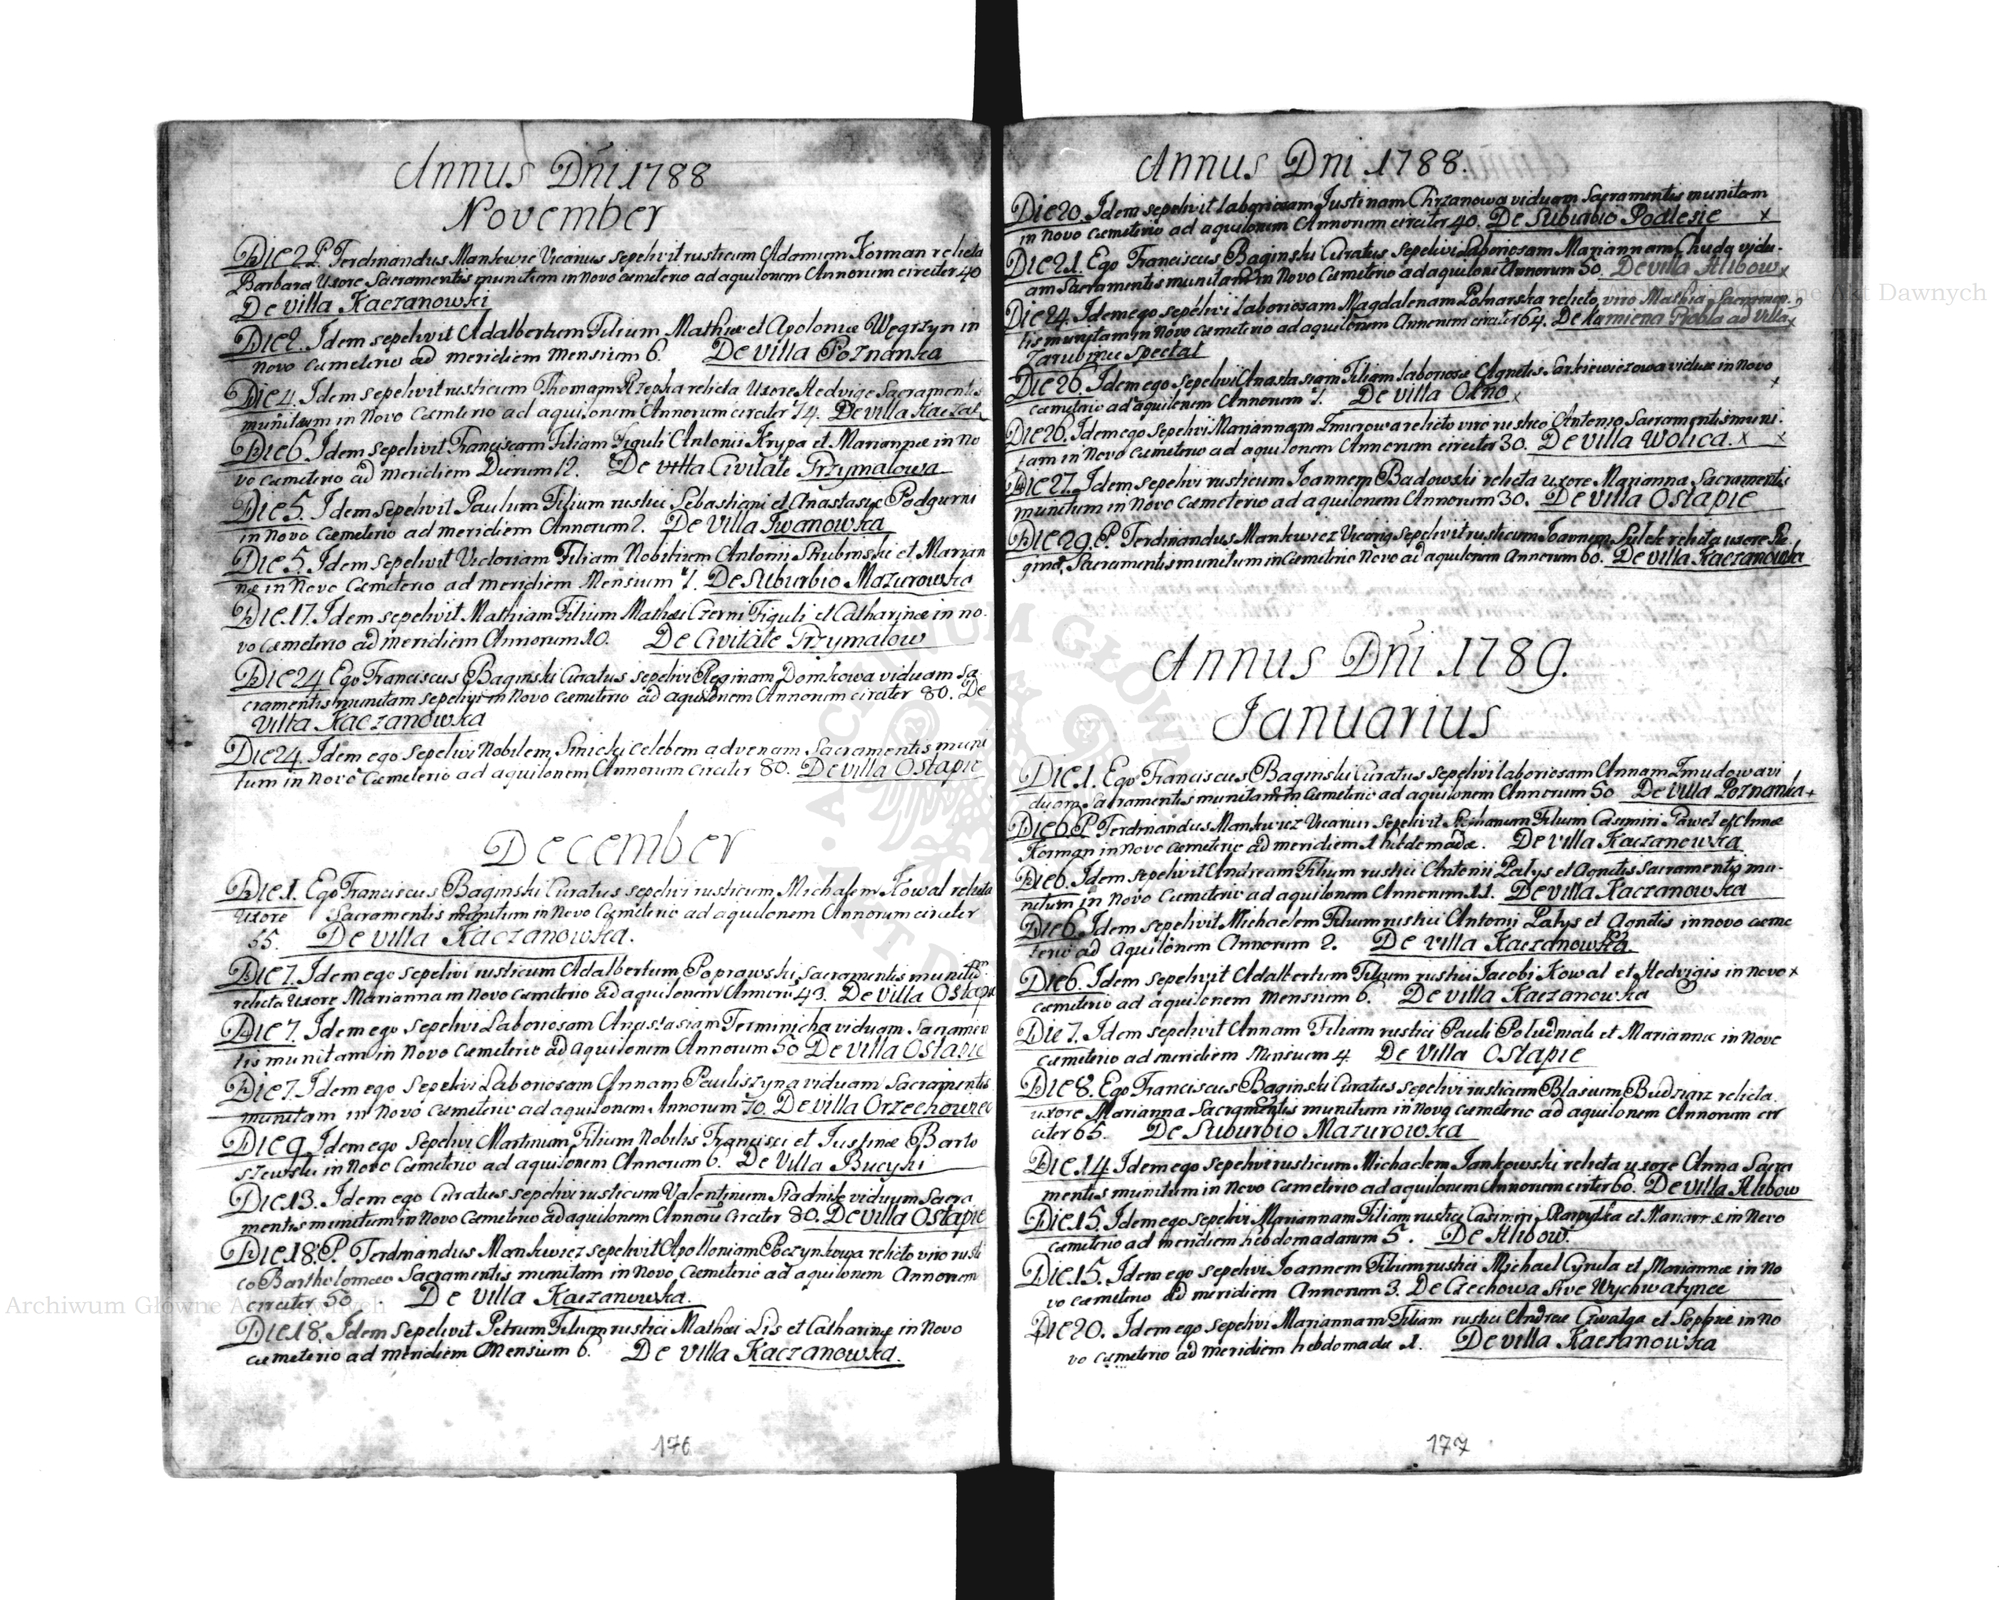 Annus Dñi 1788
November
Die 2 P. Ferdinandus Mankwic Vicarius sepelivit rusticum Adamum Korman relicta
Barbara Uxore Sacramentis munitum in Novo cæmeterio ad aquilonem Annorum circiter 40
De villa Kaczanowki
Die 2. Idem sepelivit Adalbertum Filium Mathiæ et Apoloniæ Węgrzyn in
Novo Cæmeterio ad meridiem Mensium 6. De villa Poznanka
Die 4. Idem sepelivit rusticum Thomam Rzepka relicta Uxore Hedvige Sacramentis
munitum in Novo Cæmterio ad aquilonem Annorum circiter 74. De villa Kaczan
Die 6. Idem sepelivit Franciscam Filiam Figuli Antonii Krypa et Mariannæ in No
vo Cæmeterio ad Meridiem Dierum 12. De Civitate Grzymalowa
Die 5. Idem Sepelivit Paulum Filium rustici Sebastiani et Anastasiæ Podgurni
in Novo Cæmeterio ad meridiem Annorum 2. De Villa Iwanowka
Die 5. Idem sepelivit Victoriam Filiam Nobilium Antonii Skubinski et Marian
næ in Novo Cæmeterio ad meridiem Mensium 7. De Suburbio Mazurowka
Die 17. Idem sepelivit Mathiam Filium Mathæi Czerni Figuli et Catharinæ in no
vo Cæmeterio ad meridiem Annorum 10. De Civitate Grzymalow
Die 24 Ego Franciscus Baginski Curatus sepelivi Reginam Domkowa viduam Sa
cramentis munitam sepelivi in Novo Cæmeterio ad aquilonem Annorum circiter 80. De
villa Kaczanowka
Die 24. Idem ego Sepelivi Nobilem Celebem advenam Sacramentis muni
tum in Novo Cæmeterio ad aquilonem Annorum Circiter 80. De villa Ostapie
December
Die 1. Ego Franciscus Baginski Curatus sepelivi rusticum Michaelem Kowal relicta
Uxore Sacramentis munitum in Novo Cæmeterio ad aquilonem Annorum circiter
55. De villa Kaczanowka.
Die 1. Idem ego sepelivi rusticum Adalbertum Poprawski Sacramentis munitum
relicta Uxore Marianna in Novo Cæmeterio ad aquilonem Annorũ 43. De villa Ostapie
Die 7. Idem ego sepelivi Laboriosam Anastasiam Terminicha viduam Sacramen
tis munitam in Novo Cæmeterio ad aquilonem Annorum 50 De villa Ostapie
Die 7. Idem ego Sepelivi Laboriosam Annam Pauliszyna viduam Sacramentis
munitam in Novo Cæmeterio ad aquilonem Annorum 70. De villa Orzechowiec
Die 9 Idem ego Sepelivi Martinum Filium Nobilis Francisci et Justinæ Barto
szewski in Novo Cæmeterio ad aquilonem Annorum 6. De Villa Bucyki
Die 13. Idem ego Curatus sepelivi rusticum Valentinum Stadnik viduum Sacra
mentis munitum in Novo Cæmeterio ad aquilonem Annorũ Circiter 80. De villa Ostapie
Die 18. P. Ferdinandus Mankwicz sepelivit Apolloniam Poczynkowa relicto viro rusti
co Bartholomæo Sacramentis munitam in Novo Cæmeterio ad aquilonem Annorum
circiter 50. De villa Kaczanowka.
Die 18. Idem Sepelivit Petrum Filium rustici Mathæi Lis et Catharinæ in Novo
cæmeterio ad meridiem Mensium 6. De villa Kaczanowka.
176
Annus Dni 1788.
Die 20. Idem sepelivit laboriosam Justinam Chrzanowa viduam Sacramentis munitam
in Novo Cæmeterio ad aquilonem Annorum circiter 40. De Suburbio Podlesie x
Die 21. Ego Franciscus Baginski Curatus Sepelivi Laboriosam Mariannam Chuda vidu-
am Sacramentis munitam in Novo Cæmeterio ad aquilonem Annorum 50. De villa Hlibow x
Die 24. Idem ego sepelivi Laboriosam Magdalenam relicto viro Mathia Sacramen
tis munitam in Novo Cæmeterio ad aquilonem Annorum circiter 64. De Kamiena ad villa x
Zarubince spectat
Die 26. Idem ego Sepelivi Anastasiam Filiam laboriosæ Agnetis Sarkiewiczowa viduæ in Novo x
cæmeterio ad aquilonem Annorum 7. De villa Okno x
Die 26. Idem ego Sepelivi Mariannam Zmurowa relicto viro rustico Antonio Sacramentis muni.
tam in Novo Cæmeterio ad aquilonem Annorum circiter 30. De villa Wolica. x x
Die 27. Idem sepelivi rusticum Joannem Badowski relicta uxore Marianna Sacramentis
munitum in Novo Cæmeterio ad aquilonem Annorum 30. De villa Ostapie
Die 29. P. Ferdinandus Mankwicz Vicariũs Sepelivit rusticum Joannem Sulek relicta uxore Re
gina, Sacramentis munitum in Cæmeterio Novo ad aquilonem Annorum 60. De villa Kaczanowka
Annus Dñi 1789.
Januarius
Die 1. Ego Franciscus Baginski Curatus sepelivi laboriosam Annam Zmudowa vi
duam Sacramentis munitam in Cæmeterio ad aquilonem Annorum 50 De villa Poznanka +
Die 6 P. Ferdinandus Mankwicz Vicarius Sepelivit Stephanum Filium Casimiri Pawel et Annæ
Korman in Novo Cæmeterio ad meridiem 1 hebdomadæ. De villa Kaczanowka
Die 6. Idem sepelivit Andream Filium rustici Antonii Palys et Agnetis Sacramentis mu-
nitum in Novo Cæmeterio ad aquilonem Annorum 11. De villa Kaczanowka
Die 6. Idem sepelivit Michaelem Filium rustici Antonii Palys et Agnetis in novo cæme
terio ad Aquilonem Annorum 2. De villa Kaczanowka.
Die 6. Idem sepelivit Adalbertum Filium rustici Jacobi Kowal et Hedvigis in Novo x
cæmeterio ad aquilonem Mensium 6. De villa Kaczanowka
Die 7. Idem sepelivit Annam Filiam rustici Pauli et Mariannæ in Novo
Cæmeterio ad meridiem Mensium 4 De Villa Ostapie
Die 8. Ego Franciscus Baginski Curatus sepelivi rusticum Blasium Budziarz relicta
uxore Marianna Sacramentis munitum in Novo cæmeterio ad aquilonem Annorum cir
citer 65. De Suburbio Mazurowka
Die 14 Idem ego sepelivi rusticum Michaelem Jankowski relicta uxore Anna Sacra
mentis munitum in Novo Cæmeterio ad aquilonem Annorum circiter 60. De villa Hlibow
Die 15. Idem ego Sepelivi Mariannam Filiam rustici Casimiri Karpytka et Mariannæ in Novo
cæmeterio ad meridiem hebdomadarum 5. De Hlibow.
Die 15. Idem ego sepelivi Joannem Filium rustici Michael Cyrula et Mariannæ in No
vo cæmeterio ad meridiem Annorum 3. De Czechowa sive Wychwatynce
Die 20. Idem ego sepelivi Mariannam Filiam rustici Andreæ Gwalga et Sophiæ in No
vo cæmeterio ad meridiem hebdomada 1. De villa Kaczanowka
177
Archiwum Główne Akt Dawnych
Archiwum Główne Akt Dawnych